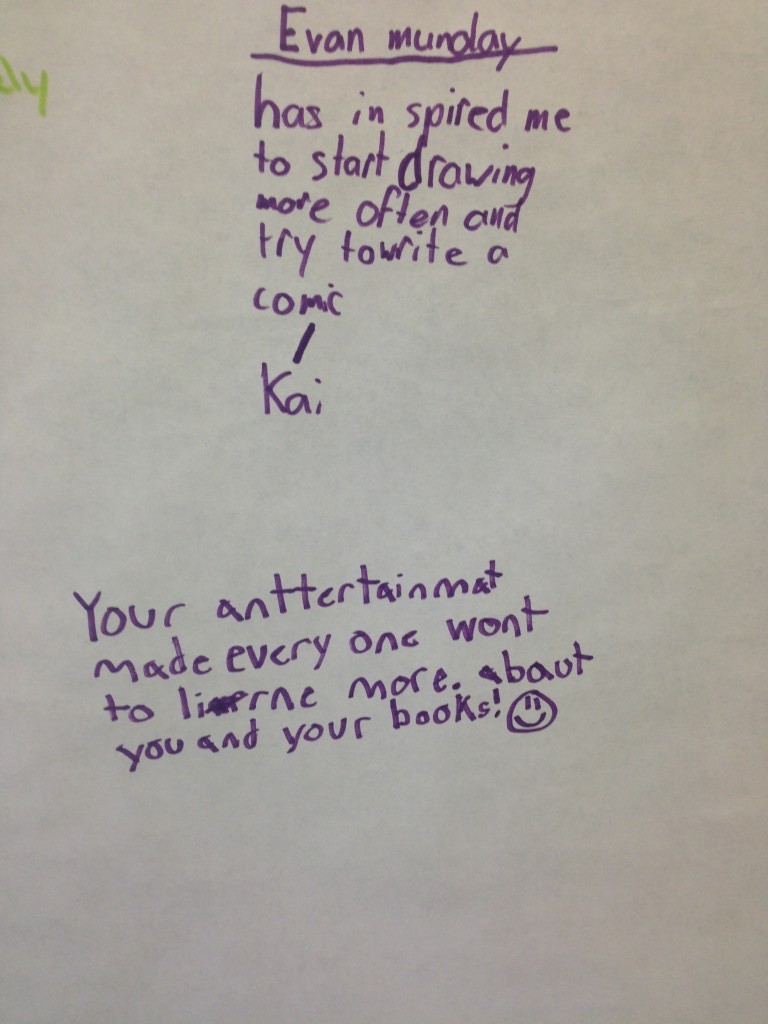 Evan munday
has in spired me
to start drawing
more often and
try towrite a
comic
Kai
Your anttertainmat
made every one wont
to lierne more. abaut
you and your books!